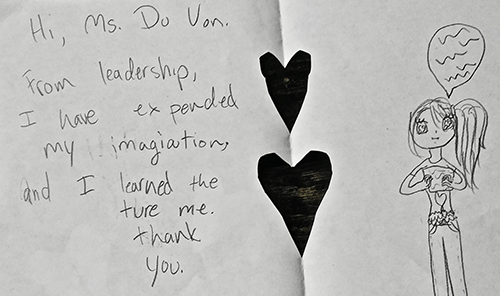 Hi, Ms. Du Von.
From leadership,
I have expended
my imagiation,
and I learned the
ture me.
thank
you.